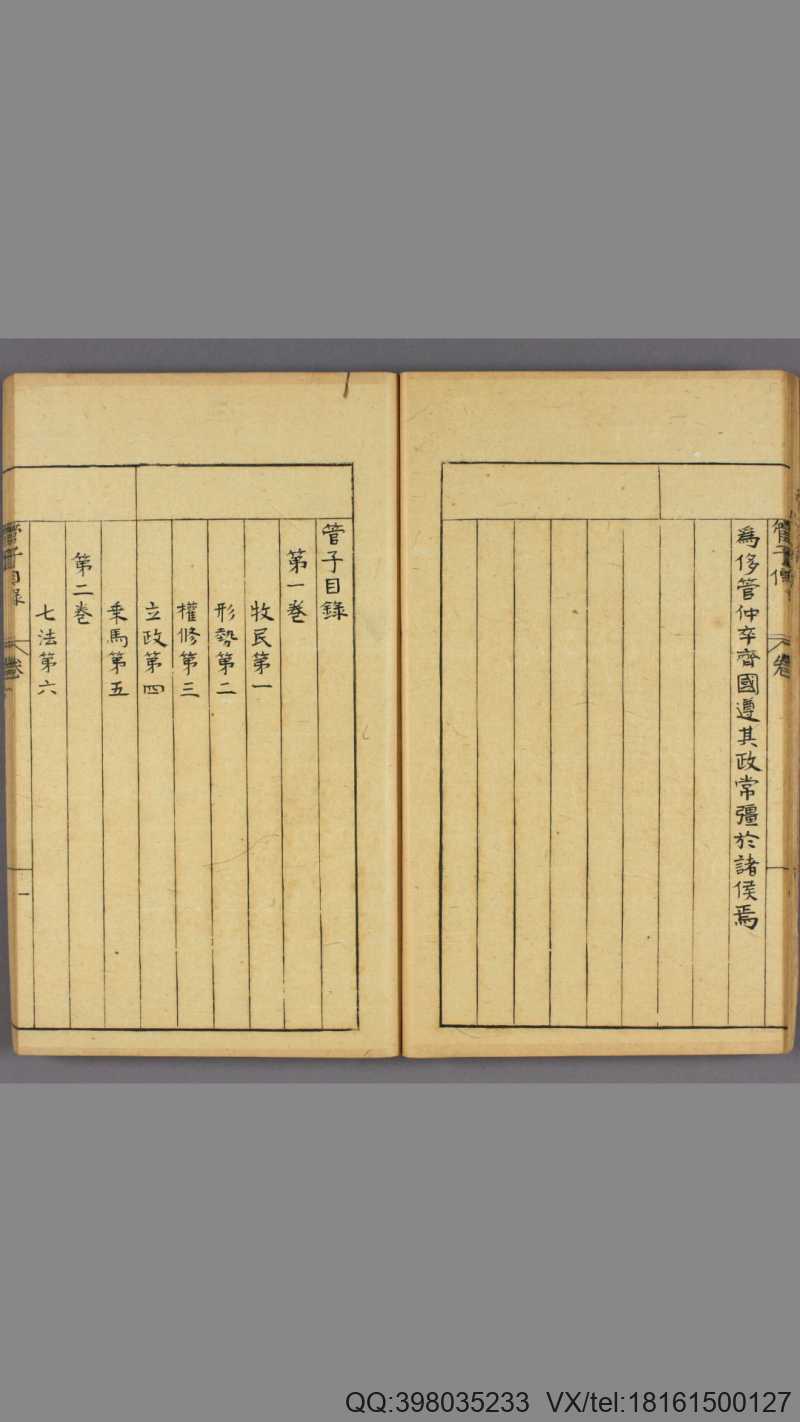 管子傳
卷
為侈管仲卒齊國遵其政常彊於諸侯焉
管子目錄
第一卷
牧民第一
形勢第二
權修第三
立政第四
乗馬第五
第二卷
七法第六
管子目录
卷
一
QQ:398035233 VX/tel:18161500127